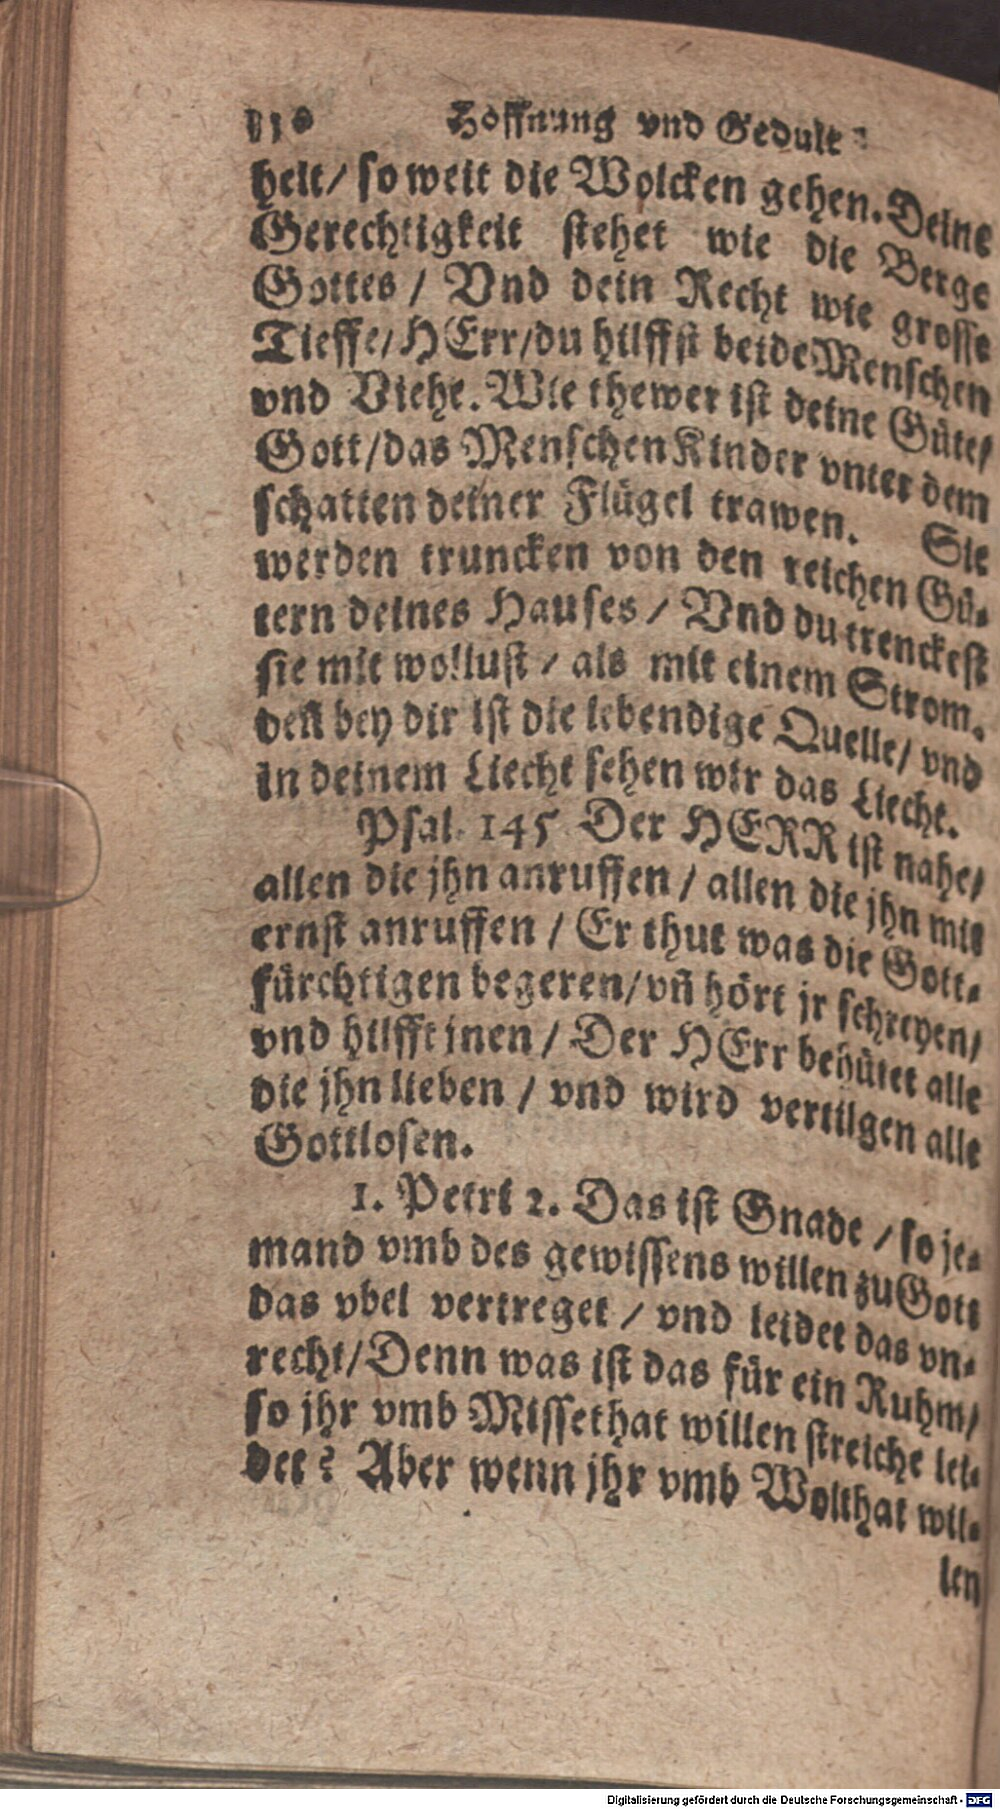 110 Hoffnung vnd Gedult
heit/ so weit die Wolcken gehen. Deine
Gerechtigkeit stehet wie die Berge
Gottes / Vnd dein Recht wie grosse
Tieffe/ HErr/ du hilffst beide Menschen
vnd Viehe. Wie thewer ist deine Güte/
Gott/ das Menschen Kinder vnter dem
schatten deiner Flügel trawen. Sie
werden truncken von den reichen Gü-
tern deines Hauses / Vnd du trenckest
sie mit wollust / als mit einem Strom.
deñ bey dir ist die lebendige Quelle/ vnd
in deinem Liecht sehen wir das Liecht.
Psal. 145 Der HERR ist nahe/
allen die jhn anruffen / allen die jhn mit
ernst anruffen / Er thut was die Gott-
fürchtigen begeren/ vñ hört jr schreyen/
vnd hilfft jnen / Der HErr behütet alle
die jhn lieben / vnd wird vertilgen alle
Gottlosen.
1. Petri 2. Das ist Gnade / so je-
mand vmb des gewissens willen zu Gott
das vbel vertreget / vnd leidet das vn-
recht/ Denn was ist das für ein Ruhm/
so jhr vmb Missethat willen streiche lei-
det? Aber wenn jhr vmb Wolthat wil-
len
Digitalisierung gefördert durch die Deutsche Forschungsgemeinschaft - DFG